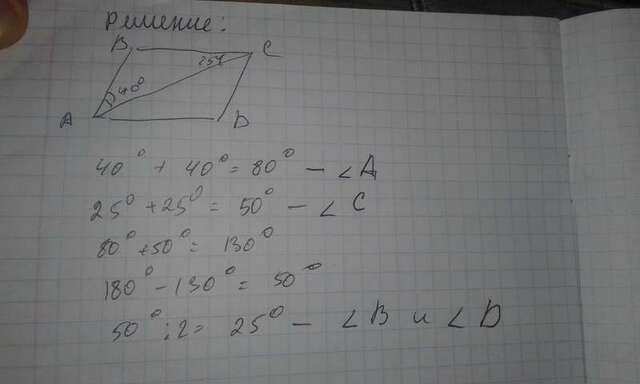 Решение:
B C
25°
40°
A D
40° + 40° = 80° - ∠A
25° + 25° = 50° - ∠C
80° + 50° = 130°
180° - 130° = 50°
50° : 2 = 25° - ∠B и ∠D